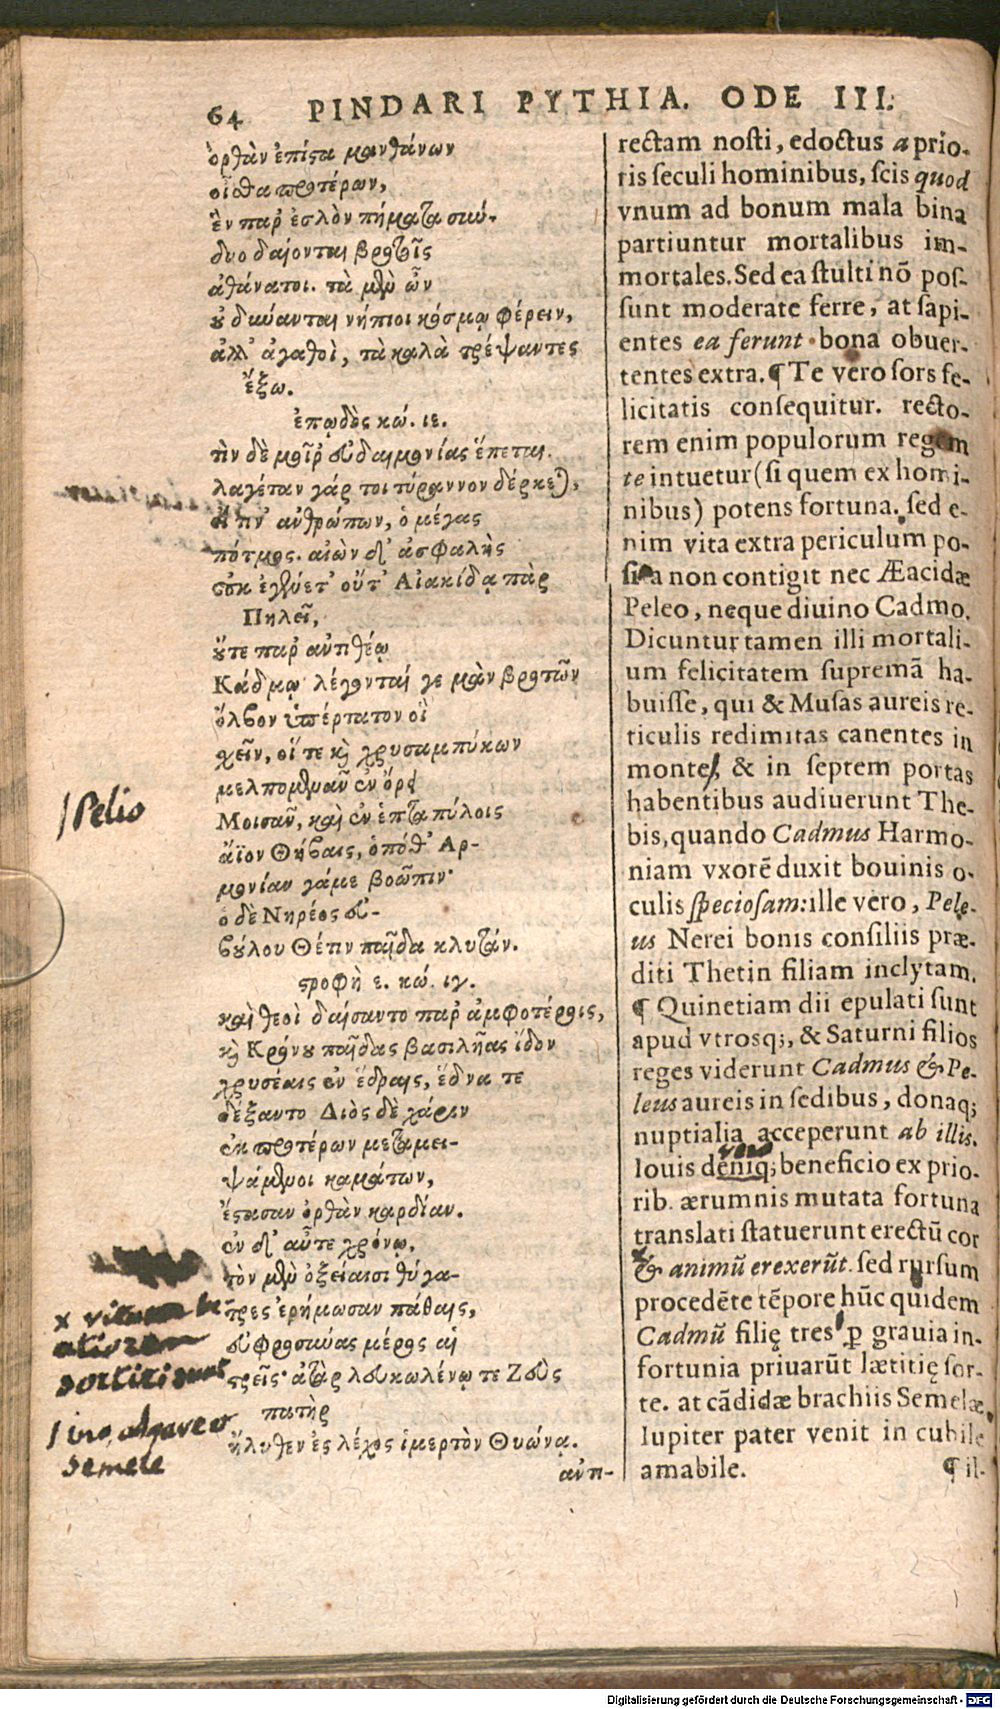 64 PINDARI PYTHIA. ODE III.
ὀρθὰν ἐπίστᾳ μανθάνων
οἶσθα προτέρων,
ἓν παρ' ἐσλὸν πήματα σύν-
δυο δαίονται βροτοῖς
ἀθάνατοι. τὰ μὲν ὦν
οὐ δύνανται νήπιοι κόσμῳ φέρειν,
ἀλλ' ἀγαθοὶ, τὰ καλὰ τρέψαντες
ἔξω.
ἐπῳδὸς κώ. ιε.
τὶν δὲ μοῖρ' εὐδαιμονίας ἕπεται.
λαγέταν γάρ τοι τύραννον δέρκεται,
εἴ τιν' ἀνθρώπων, ὁ μέγας
πότμος. αἰὼν δ' ἀσφαλὴς
οὐκ ἐγένετ' οὔτ' Αἰακίδᾳ παρ
Πηλεῖ,
οὔτε παρ' ἀντιθέῳ
Κάδμῳ λέγονταί γε μὰν βροτῶν
ὄλβον ὑπέρτατον οἳ
χεῖν, οἵ τε καὶ χρυσαμπύκων
μελπομενᾶν ἐν ὄρει
Μοισᾶν, καὶ ἐν ἑπταπύλοις
ἄϊον Θήβαις, ὁπόθ' Αρ-
μονίαν γάμε βοῶπιν·
ὁ δὲ Νηρέος εὐ-
βούλου Θέτιν παῖδα κλυτάν.
στροφὴ ε. κώ. ιγ.
καὶ θεοὶ δαίσαντο παρ' ἀμφοτέροις,
καὶ Κρόνου παῖδας βασιλῆας ἴδον
χρυσέαις ἐν ἕδραις, ἕδνα τε
δέξαντο Διὸς δὲ χάριν
ἐκ προτέρων μεταμει-
ψάμενοι καμάτων,
ἔστασαν ὀρθὰν καρδίαν.
ἐν δ' αὖτε χρόνῳ,
τὸν μὲν ὀξείαισι θύγα-
τρες ἐρήμωσαν πάθαις,
εὐφροσύνας μέρος αἱ
τρεῖς· ἀτὰρ λευκωλένῳ τε Ζεὺς
πατὴρ
ἤλυθεν ἐς λέχος ἱμερτὸν Θυώνᾳ.
αὐτι-
rectam nosti, edoctus a prio-
ris seculi hominibus, scis quod
vnum ad bonum mala bina
partiuntur mortalibus im-
mortales. Sed ea stulti nō pos-
sunt moderate ferre, at sapi-
entes ea ferunt bona obuer-
tentes extra. ¶ Te vero sors fe-
licitatis consequitur. recto-
rem enim populorum regem
te intuetur (si quem ex homi-
nibus) potens fortuna. sed e-
nim vita extra periculum po-
sita non contigit nec Æacidæ
Peleo, neque diuino Cadmo.
Dicuntur tamen illi mortali-
um felicitatem supremā ha-
buisse, qui & Musas aureis re-
ticulis redimitas canentes in
monte, & in septem portas
habentibus audiuerunt The-
bis, quando Cadmus Harmo-
niam vxorē duxit bouinis o-
culis speciosam: ille vero, Pele-
us Nerei bonis consiliis præ-
diti Thetin filiam inclytam.
¶ Quinetiam dii epulati sunt
apud vtrosq;, & Saturni filios
reges viderunt Cadmus & Pe-
leus aureis in sedibus, donaq;
nuptialia acceperunt ab illis.
vero
Iouis deniq; beneficio ex prio-
rib. ærumnis mutata fortuna
translati statuerunt erectū cor
& animū erexerūt. sed rursum
procedēte tēpore hūc quidem
Cadmū filię tres p grauia in-
fortunia priuarūt lætitię sor-
te. at cādidæ brachiis Semelæ
Iupiter pater venit in cubile
amabile. ¶ il-
/ Pelio
x
sortiti
/ ino, agave
semele
Digitalisierung gefördert durch die Deutsche Forschungsgemeinschaft - DFG